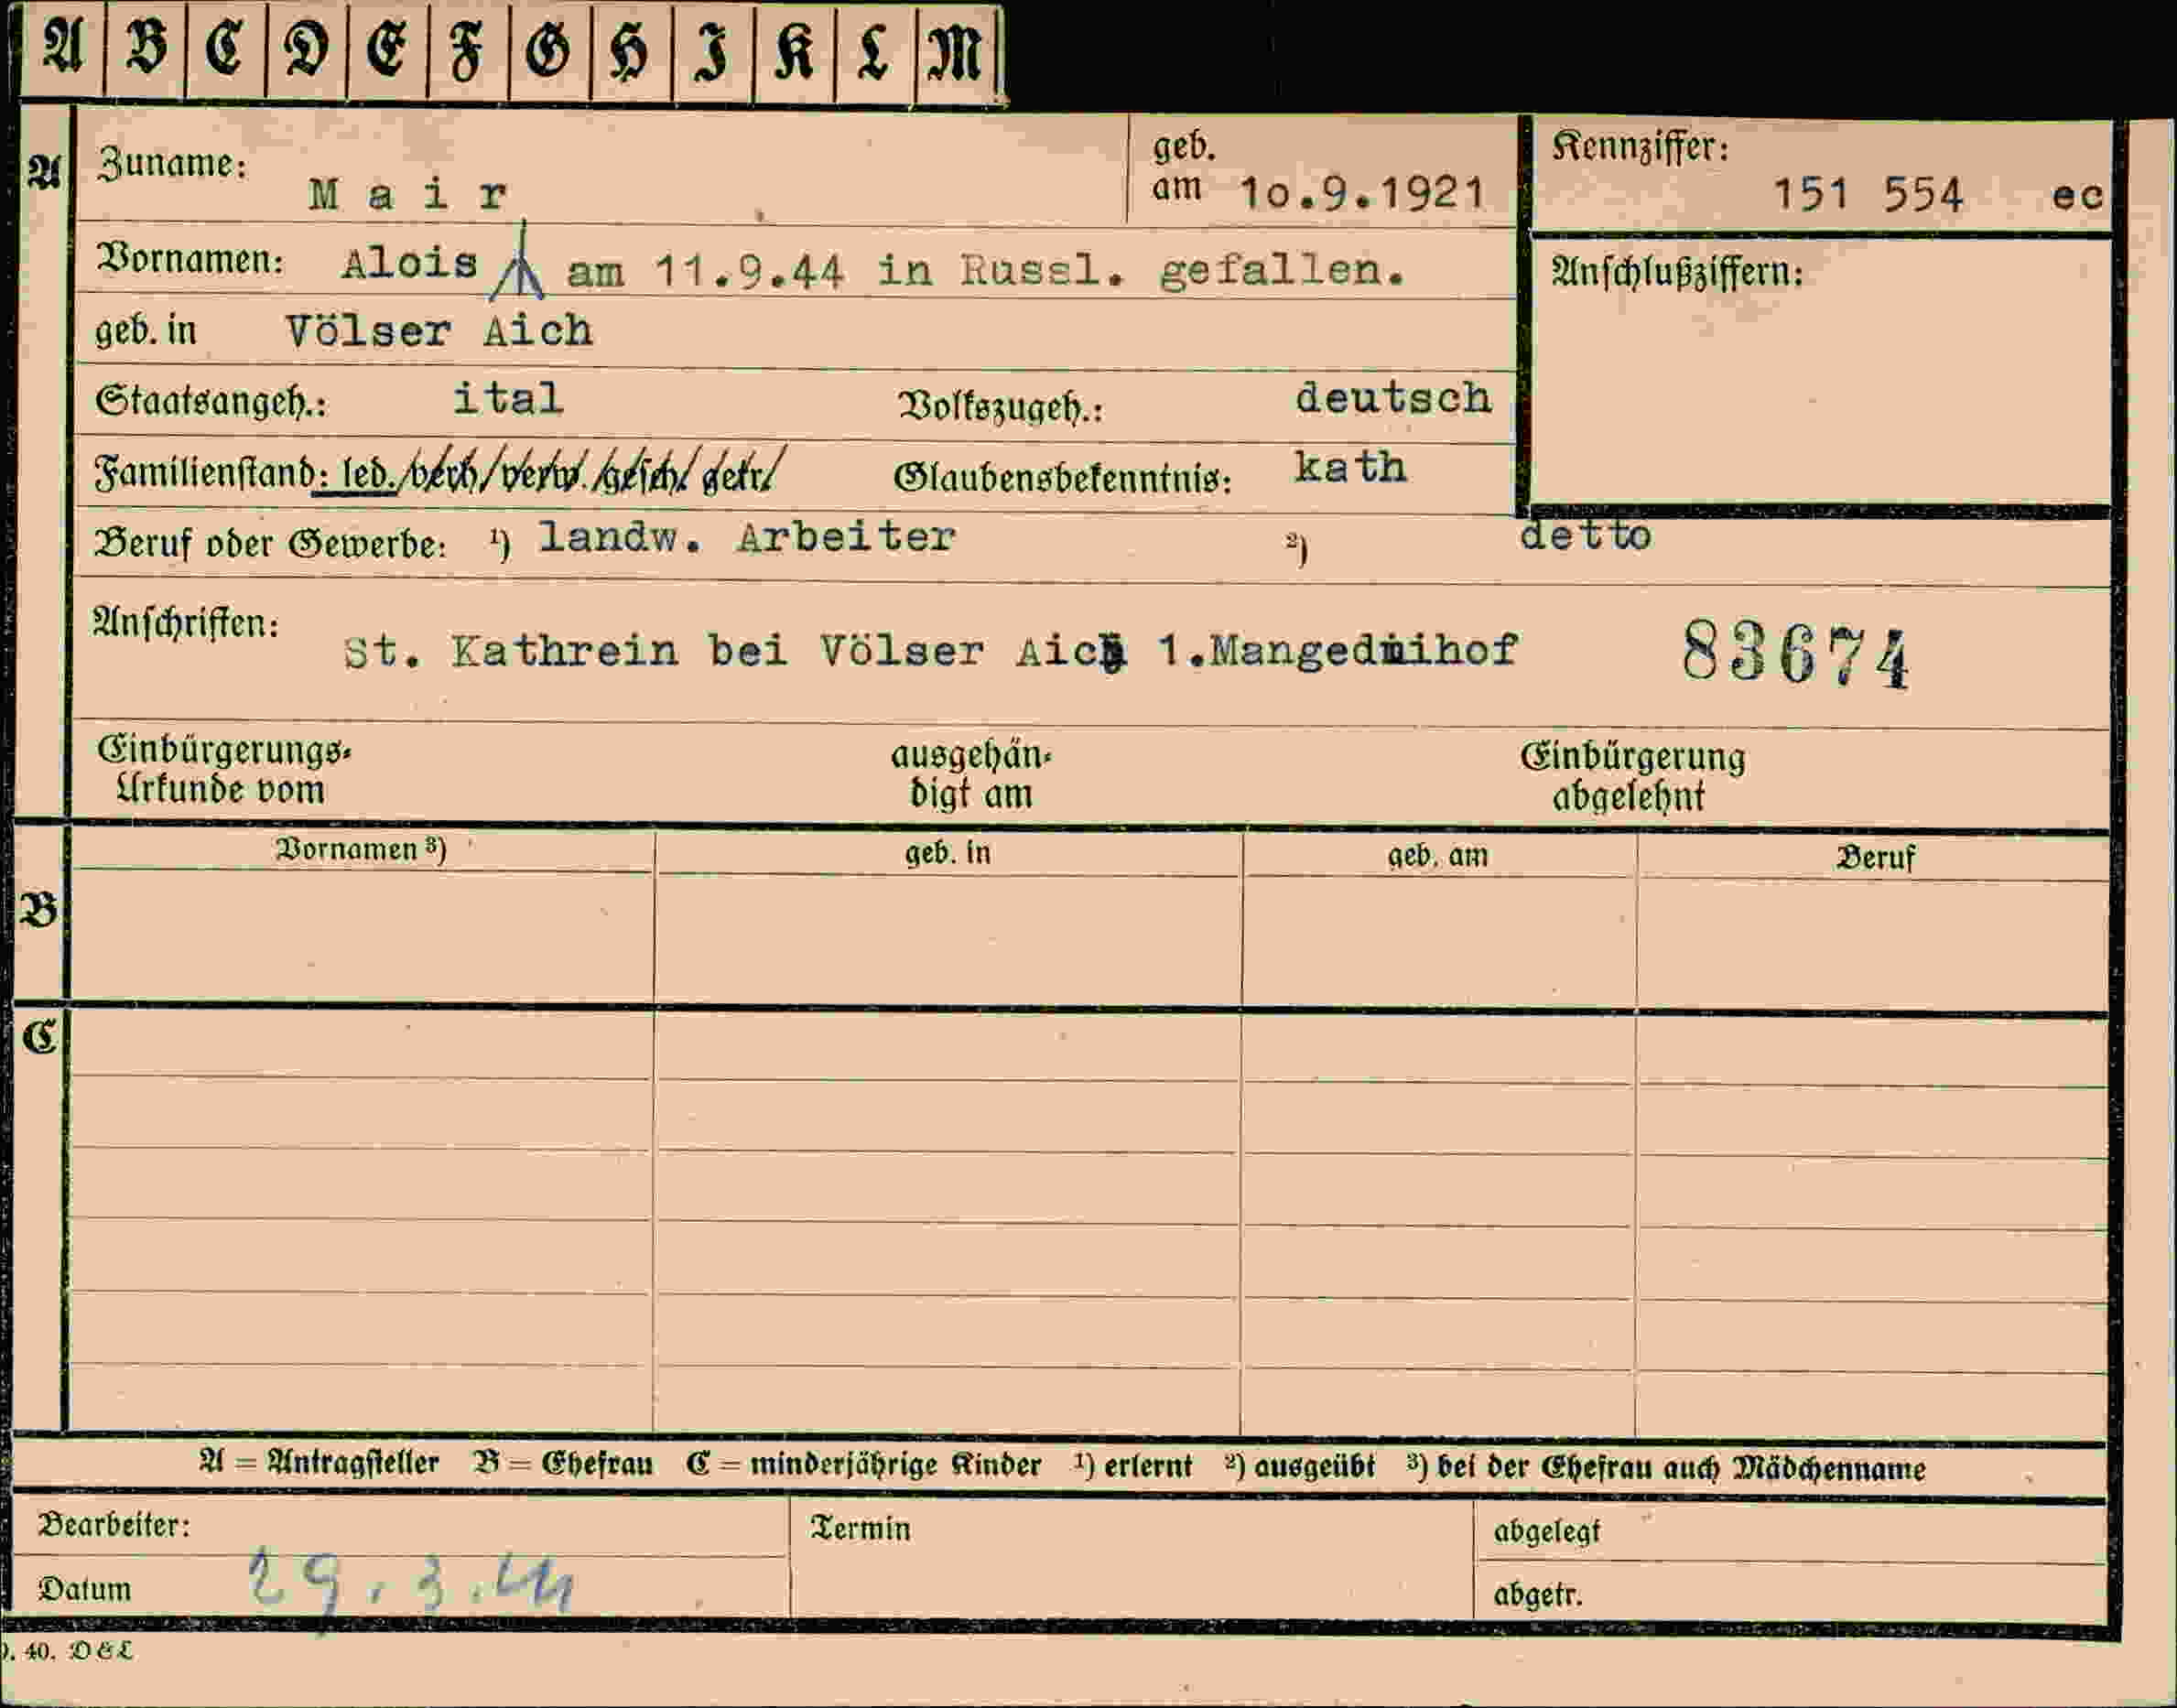 A B C D E F G H I K L M
A Zuname: Mair geb. am 1o.9.1921 Kennziffer: 151 554 ec
Vornamen: Alois am 11.9.44 in Russl. gefallen. Anschlußziffern:
geb. in Völser Aich
Staatsangeh.: ital Volkszugeh.: deutsch
Familienstand: led./verh/verw./gesch/getr/ Glaubensbekenntnis: kath
Beruf oder Gewerbe: 1) landw. Arbeiter 2) detto
Anschriften: St. Kathrein bei Völser Aich 1.Mangeduihof 83674
Einbürgerungs- ausgehän- Einbürgerung
Urkunde vom digt am abgelehnt
Vornamen 3) geb. in geb. am Beruf
B
C
A = Antragsteller B = Ehefrau C = minderjährige Kinder 1) erlernt 2) ausgeübt 3) bei der Ehefrau auch Mädchenname
Bearbeiter: Termin abgelegt
Datum 29.3.44 abgetr.
40. D&L